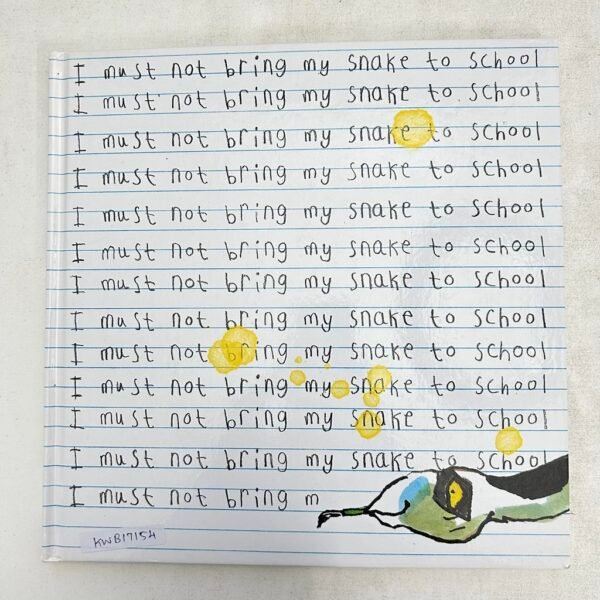 I must not bring my snake to school
I must not bring my snake to school
I must not bring my snake to school
I must not bring my snake to school
I must not bring my snake to school
I must not bring my snake to school
I must not bring my snake to school
I must not bring my snake to school
I must not bring my snake to school
I must not bring my snake to school
I must not bring my snake to school
I must not bring my snake to school
I must not bring m
KWB17154